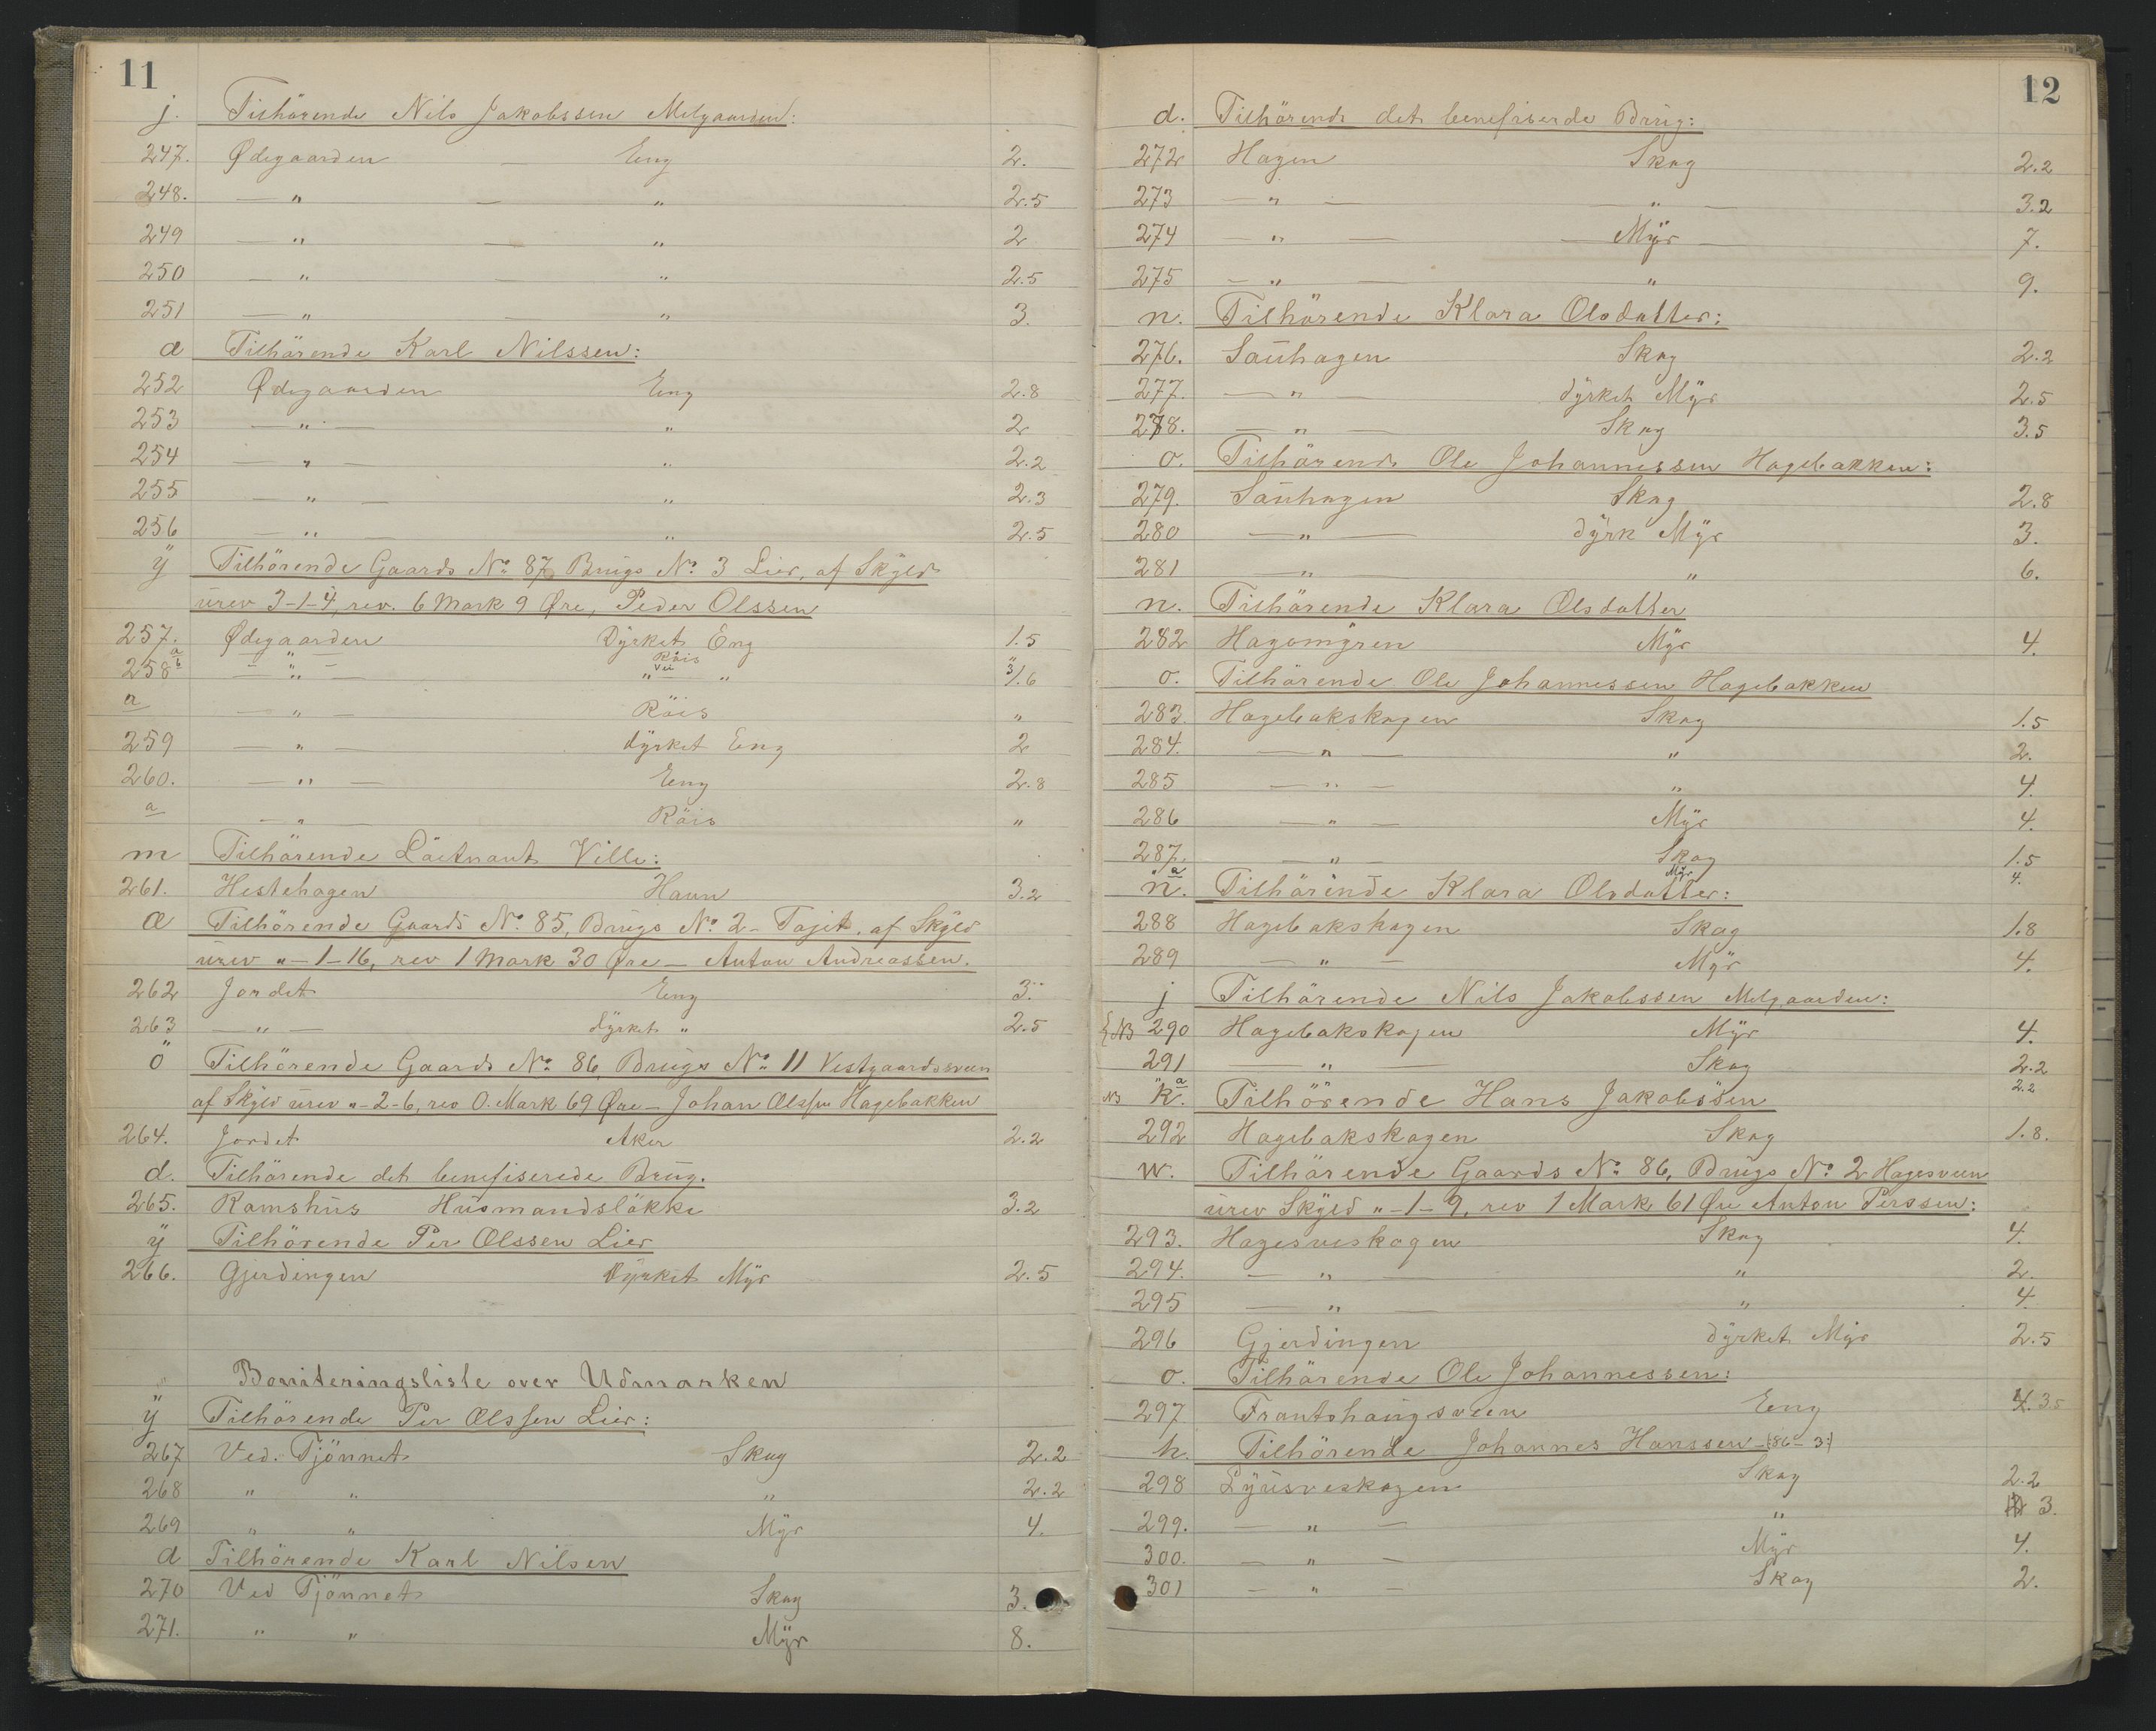 11
j. Tilhörende Nils Jakobssen Melgaarden:
247. Ødegaarden — Eng 2.
248. — " — " 2.5
249 — " — " 2
250 — " — " 2.5
251 — " — " 3.
a Tilhörende Karl Nilssen:
252 Ødegaarden Eng 2.8
253 — " — " 2
254 — " — " 2.2
255 — " — " 2.3
256 — " — " 2.5
ÿ Tilhörende Gaards No. 87, Brügs No. 3 Lier, af Skÿld
ürev 3-1-4, rev. 6 Mark 9 Øre, Peder Olssen
257. Ødegaarden Dÿrket Eng 1.5
a — " — Röis "
258 b — " — " Vei " 3 1.6
a — " — Röis "
259 — " — dÿrket Eng 2
260. — " — Eng 2.8
a — " — Röis "
m Tilhörende Löitnant Ville:
261. Hestehagen Havn 3.2
æ Tilhörende Gaards No. 85, Brügs No. 2 - Tajet, af Skÿld
ürev " - 1 - 16, rev 1 Mark 30 Øre — Anton Andreassen.
262 Jordet Eng 3.
263 — " — dÿrket " 2.5
ö Tilhörende Gaards No. 86, Brügs No. 11 Vestgaardssveen
af Skÿld ürev " - 2-6, rev 0. Mark 69 Øre — Johan Olssen Hagebakken
264. Jordet Aker 2.2
d. Tilhörende det benefiserede Brüg.
265. Ramshüs Hüsmandslökke 3.2
ÿ Tilhörende Per Olssen Lier
266. Gjerdingen Dÿrket Mÿr 2.5
Boniteringsliste over Udmarken
ÿ Tilhörende Per Olssen Lier:
267 Ved. Tjönnet Skog 2.2
268 " " " 2.2
269 " " Mÿr 4.
a Tilhörende Karl Nilsen
270 Ved Tjönnet Skog 3.
271. " " Mÿr 8.
12
d. Tilhörende det benefiserde Brüg:
272 Hagen Skog 2.2
273 — " — " — 3.2
274 — " — — Mÿr — 7.
275 — " — " 9.
n. Tilhörende Klara Olsdatter:
276. Saühagen Skog 2.2
277. — " — dÿrket Mÿr 2.5
278. — " — Skog 3.5
o. Tilhörende Ole Johannessen Hagebakken:
279. Saühagen Skog 2.8
280 — " — dÿrk Mÿr 3.
281 — " — " 6.
n. Tilhörende Klara Olsdatter
282 Hagemÿren Mÿr 4.
o. Tilhörende Ole Johannessen Hagebakken
283. Hagebakskogen Skog 1.5
284. — " — " 2.
285 — " — " 4.
286 — " — Mÿr 4.
287. — " — Skog 1.5
" a Mÿr 4.
n. Tilhörende Klara Olsdatter:
288 Hagebakskogen Skog 1.8
289 — " — Mÿr 4.
j Tilhörende Nils Jakobssen Melgaarden:
NB 290 Hagebakskogen Mÿr 4.
291 — " — Skog 2.2
NB " a 2.2
k. Tilhörende Hans Jakobssen
292 Hagebakskogen Skog 1.8.
w. Tilhörende Gaards No. 86, Brügs No. 2 Hagesveen
ürev Skÿld " - 1 - 9, rev 1 Mark 61 Øre Anton Perssen:
293. Hagesveskogen Skog 4.
294. — " — " 2.
295 — " — " 4.
296 Gjerdingen dÿrket Mÿr 2.5
o. Tilhörende Ole Johannessen:
297 Frantshaugsveen Eng 4. 3.5
h. Tilhörende Johannes Hanssen - (86 - 3:)
298 Lÿüsveskogen Skog 2.2
299. — " — " 3.
300. — " — Mÿr 4.
301 — " — Skog 2.